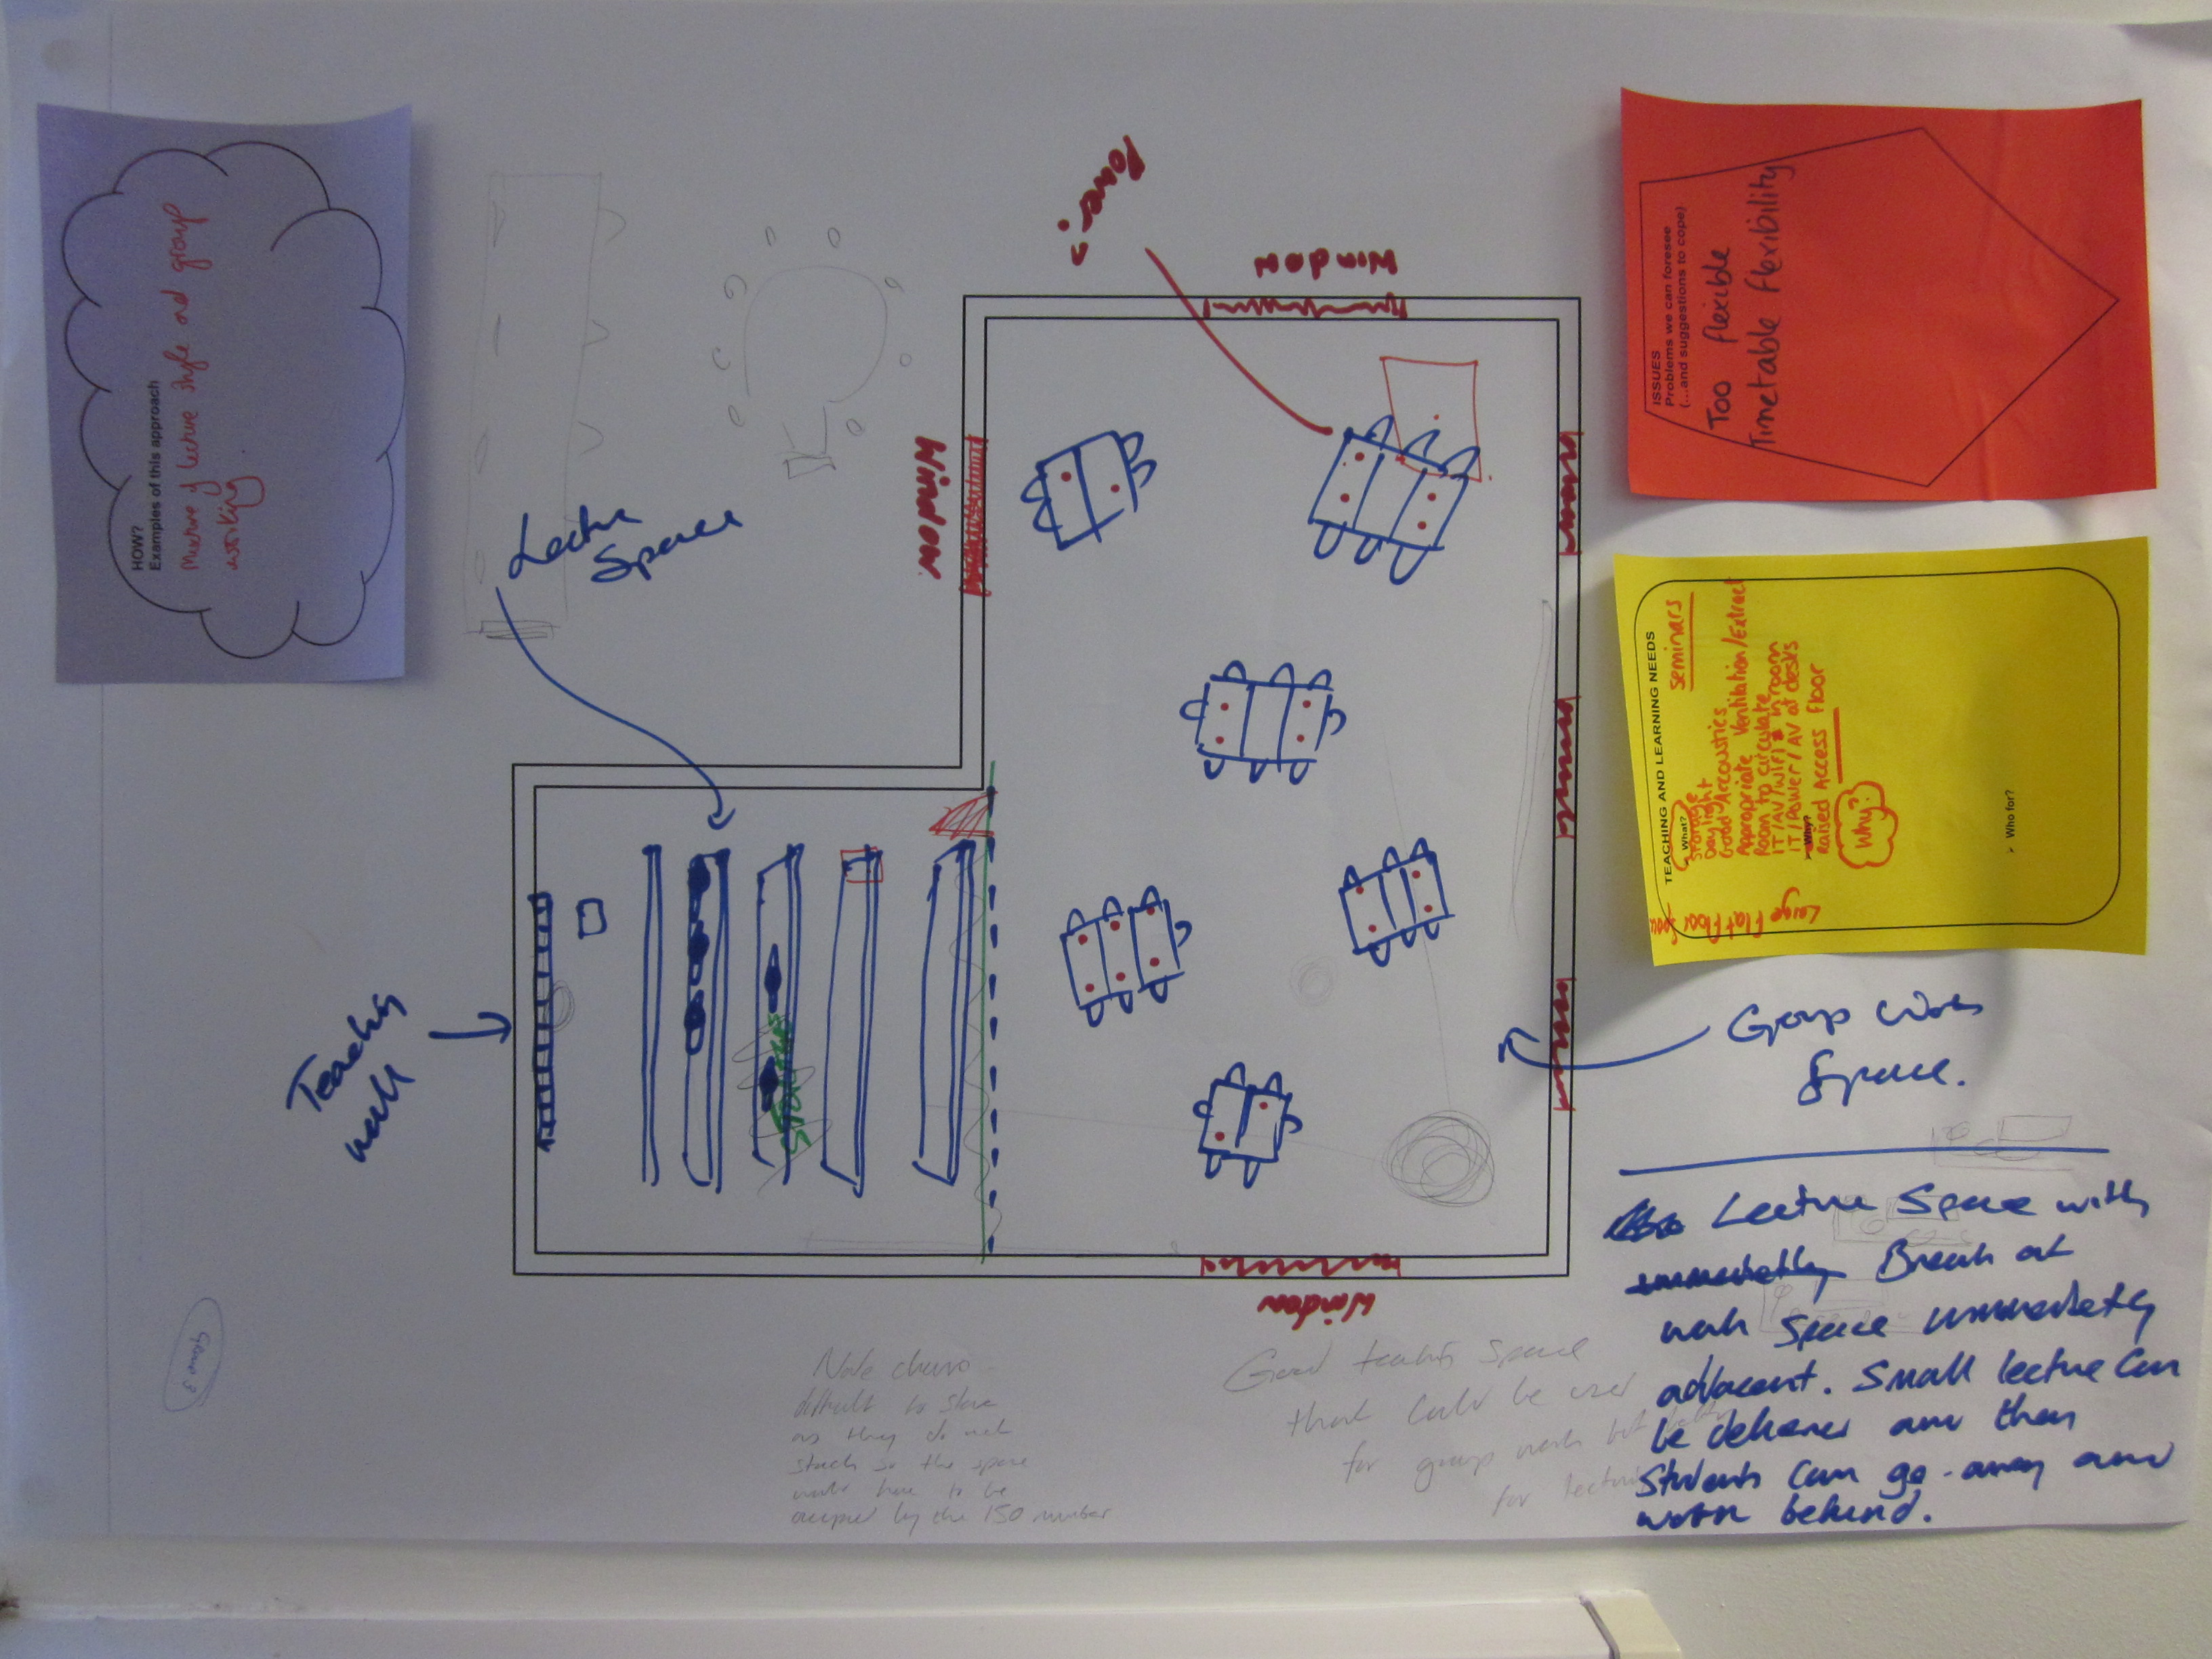 HOW?
Examples of this approach
Mixture of lecture style and group
working
Lecture
Space
Power?
Window
Window
Window
Teaching
wall
STORAGE
ISSUES
Problems we can foresee
(...and suggestions to cope)
Too flexible
Timetable flexibility
TEACHING AND LEARNING NEEDS
What?
Seminars
Storage
Daylight
Good Accoustics
Appropriate Ventilation/Extract
Room to circulate
IT/AV/WiFi in room
IT/Power/AV at desks
Why?
Raised Access Floor
Why?
Who for?
Large
Flat Floor
Group Work
Space.
Lecture Space with
immediately Break out
work space immediately
adjacent. Small lecture can
be delivered and then
Students can go away and
work behind.
Good teaching space
that could be used
for group work but
for lecture
Note chairs
difficult to store
as they do not
stack so the space
would have to be
occupied by the 150 number
Group 3